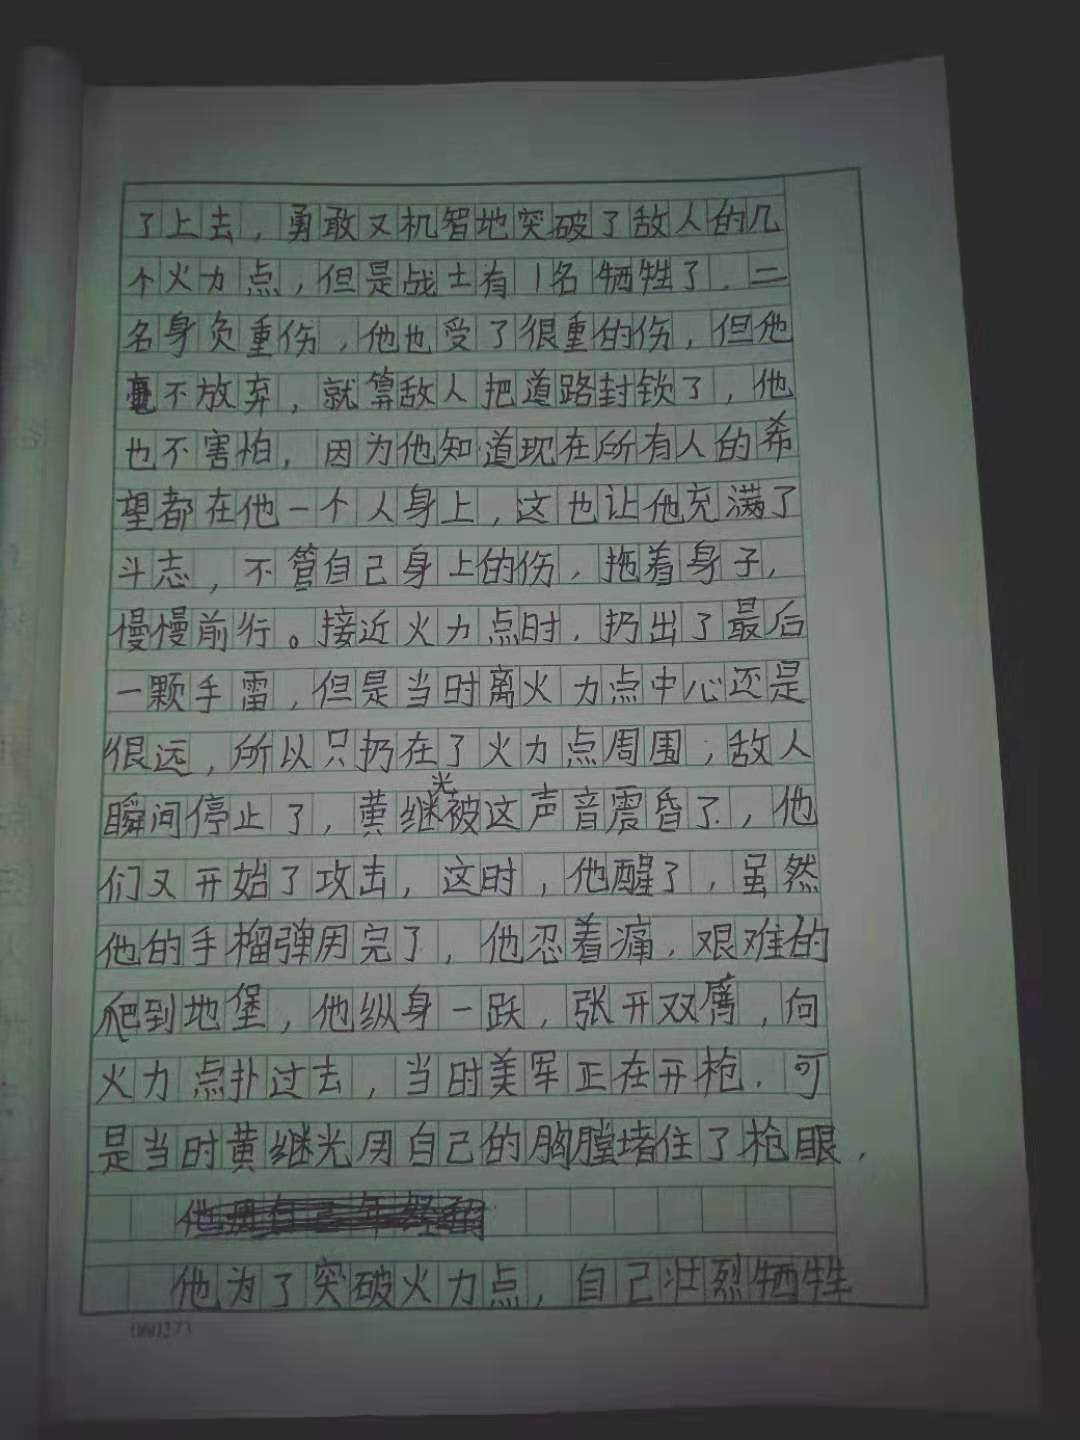 了上去，勇敢又机智地突破了敌人的几
个火力点，但是战士有1名牺牲了，二
名身负重伤，他也受了很重的伤，但他
毫不放弃，就算敌人把道路封锁了，他
也不害怕，因为他知道现在所有人的希
望都在他一个人身上，这也让他充满了
斗志，不管自己身上的伤，拖着身子，
慢慢前行。接近火力点时，扔出了最后
一颗手雷，但是当时离火力点中心还是
很远，所以只扔在了火力点周围，敌人
瞬间停止了，黄继光被这声音震昏了，他
们又开始了攻击，这时，他醒了，虽然
他的手榴弹用完了，他忍着痛，艰难的
爬到地堡，他纵身一跃，张开双臂，向
火力点扑过去，当时美军正在开枪，可
是当时黄继光用自己的胸膛堵住了枪眼，
他为了突破火力点，自己壮烈牺牲
060273